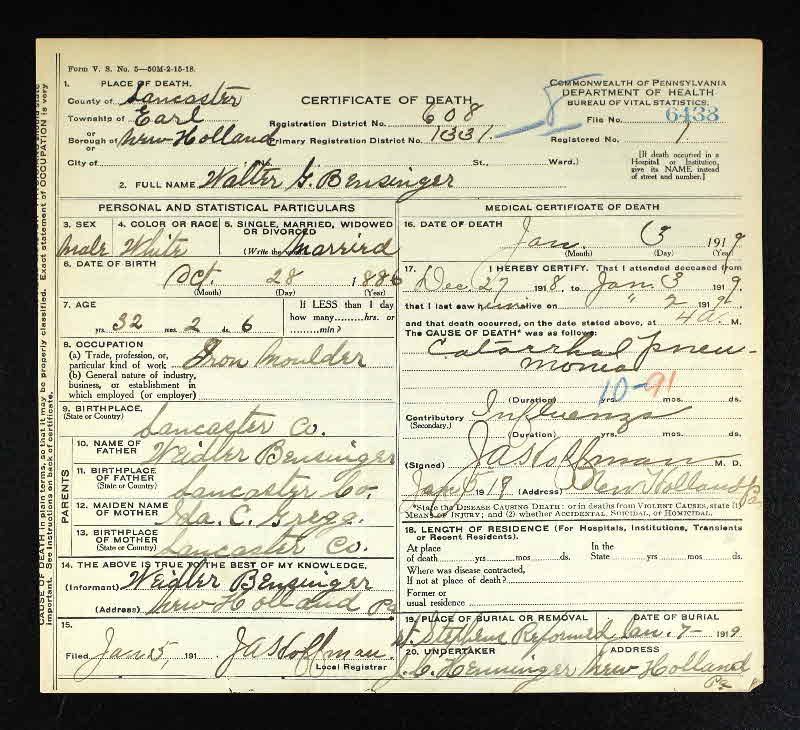 Form V. S. No. 5—50M-2-15-18.
1. PLACE OF DEATH.
County of Lancaster
Township of Earl
or
Borough of New Holland
City of
COMMONWEALTH OF PENNSYLVANIA
DEPARTMENT OF HEALTH
BUREAU OF VITAL STATISTICS.
CERTIFICATE OF DEATH
Registration District No. 608
File No. 6433
Primary Registration District No. 1331
Registered No. 1
No. St., Ward.)
[If death occurred in a Hospital or Institution, give its NAME instead of street and number.]
2. FULL NAME Walter G. Bensinger
PERSONAL AND STATISTICAL PARTICULARS
3. SEX
male
4. COLOR OR RACE
White
5. SINGLE, MARRIED, WIDOWED OR DIVORCED
(Write the word) Married
6. DATE OF BIRTH
Oct. 28 1886
(Month) (Day) (Year)
7. AGE
32 yrs. 2 mos. 6 ds.
If LESS than 1 day
how many hrs. or
min?
8. OCCUPATION
(a) Trade, profession, or
particular kind of work Iron Moulder
(b) General nature of industry,
business, or establishment in
which employed (or employer)
9. BIRTHPLACE,
(State or Country)
Lancaster Co.
PARENTS
10. NAME OF FATHER
Weidler Bensinger
11. BIRTHPLACE OF FATHER
(State or Country)
Lancaster Co.
12. MAIDEN NAME OF MOTHER
Ida. C. Gregg.
13. BIRTHPLACE OF MOTHER
(State or Country)
Lancaster Co.
14. THE ABOVE IS TRUE TO THE BEST OF MY KNOWLEDGE,
(Informant) Weidler Bensinger
(Address) New Holland Pa
15.
Filed Jan 5, 191 JA Hoffman
Local Registrar
MEDICAL CERTIFICATE OF DEATH
16. DATE OF DEATH
Jan. 3 1919
(Month) (Day) (Year)
17. I HEREBY CERTIFY, That I attended deceased from
Dec. 27 1918, to Jan. 3 1919.
that I last saw him alive on " 2 1919.
and that death occurred, on the date stated above, at 4 a. M.
The CAUSE OF DEATH* was as follows:
Catarrhal Pneu-
monia
10-91
(Duration) yrs. mos. ds.
Contributory Influenza
(Secondary.)
(Duration) yrs. mos. ds.
(Signed) JA Hoffman M. D.
Jan 1919 (Address) New Holland Pa
*State the DISEASE CAUSING DEATH: or in deaths from VIOLENT CAUSES, state (1) MEANS OF INJURY; and (2) whether ACCIDENTAL, SUICIDAL, or HOMICIDAL.
18. LENGTH OF RESIDENCE (For Hospitals, Institutions, Transients
or Recent Residents).
At place
of death yrs. mos. ds.
In the
State yrs. mos. ds.
Where was disease contracted,
If not at place of death?
Former or
usual residence
19. PLACE OF BURIAL OR REMOVAL
St Stephens Reformed
DATE OF BURIAL
Jan. 7— 1919
20. UNDERTAKER
J. C. Henninger
ADDRESS
New Holland
Pa